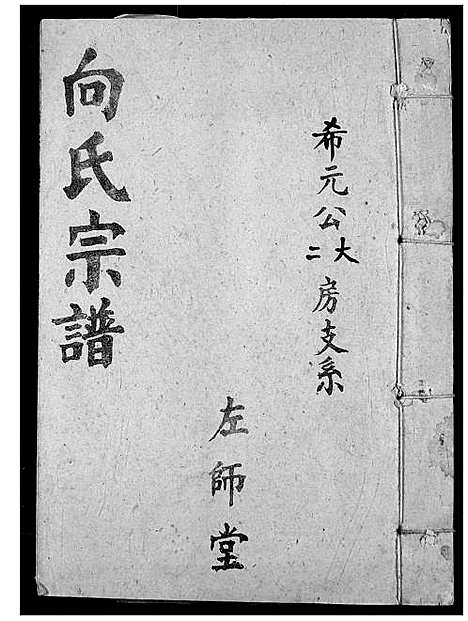 希元公大二房支系
左師堂
向氏宗譜